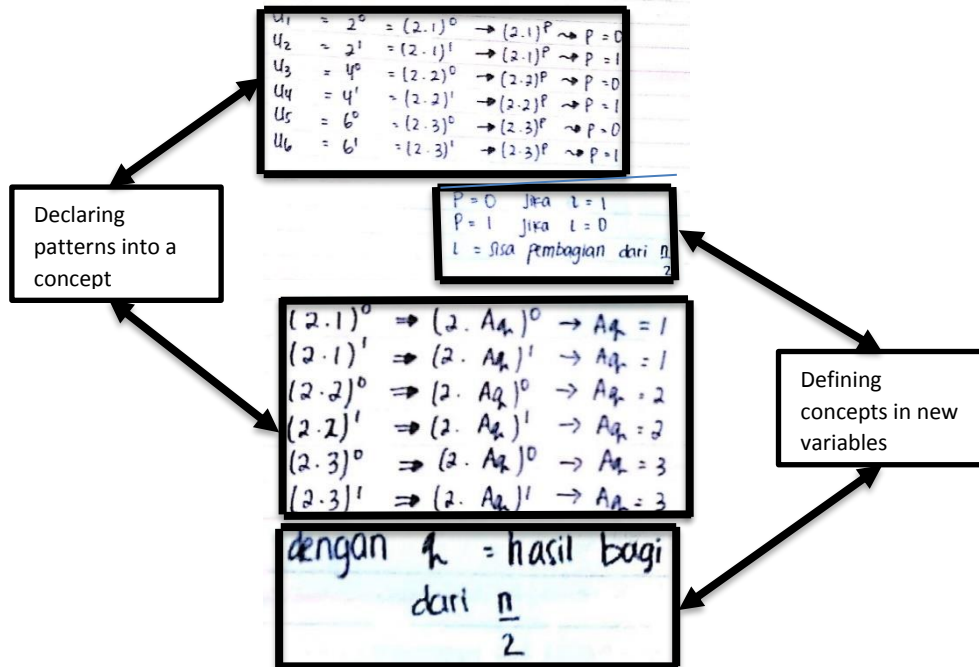 U₁ = 2⁰ = (2.1)⁰ → (2.1)ᴾ ⇝ P = 0
U₂ = 2¹ = (2.1)¹ → (2.1)ᴾ ⇝ P = 1
U₃ = 4⁰ = (2.2)⁰ → (2.2)ᴾ ⇝ P = 0
U₄ = 4¹ = (2.2)¹ → (2.2)ᴾ ⇝ P = 1
U₅ = 6⁰ = (2.3)⁰ → (2.3)ᴾ ⇝ P = 0
U₆ = 6¹ = (2.3)¹ → (2.3)ᴾ ⇝ P = 1
Declaring
patterns into a
concept
P = 0 Jika i = 1
P = 1 Jika i = 0
i = sisa pembagian dari n/2
(2.1)⁰ ⇒ (2. Aq)⁰ → Aq = 1
(2.1)¹ ⇒ (2. Aq)¹ → Aq = 1
(2.2)⁰ ⇒ (2. Aq)⁰ → Aq = 2
(2.2)¹ ⇒ (2. Aq)¹ → Aq = 2
(2.3)⁰ ⇒ (2. Aq)⁰ → Aq = 3
(2.3)¹ ⇒ (2. Aq)¹ → Aq = 3
Defining
concepts in new
variables
dengan q = hasil bagi
dari n/2